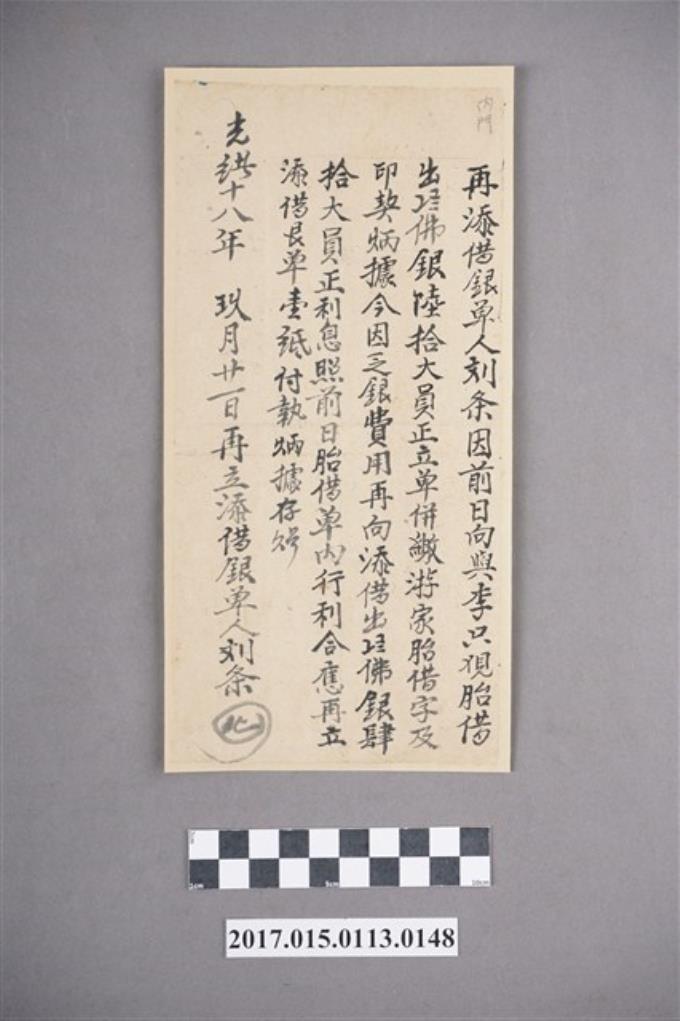 內門
再添借銀单人刘条因前日向與李只覌胎借
出佛銀陸拾大員正立单併繳游家胎借字及
印契炳據今因乏銀費用再向添借出佛銀肆
拾大員正利息照前日胎借单內行利合應再立
添借艮单壹紙付執炳據存炤
光緒十八年 玖月廿一日再立添借銀单人刘条
1cm 5cm 10cm
2017.015.0113.0148